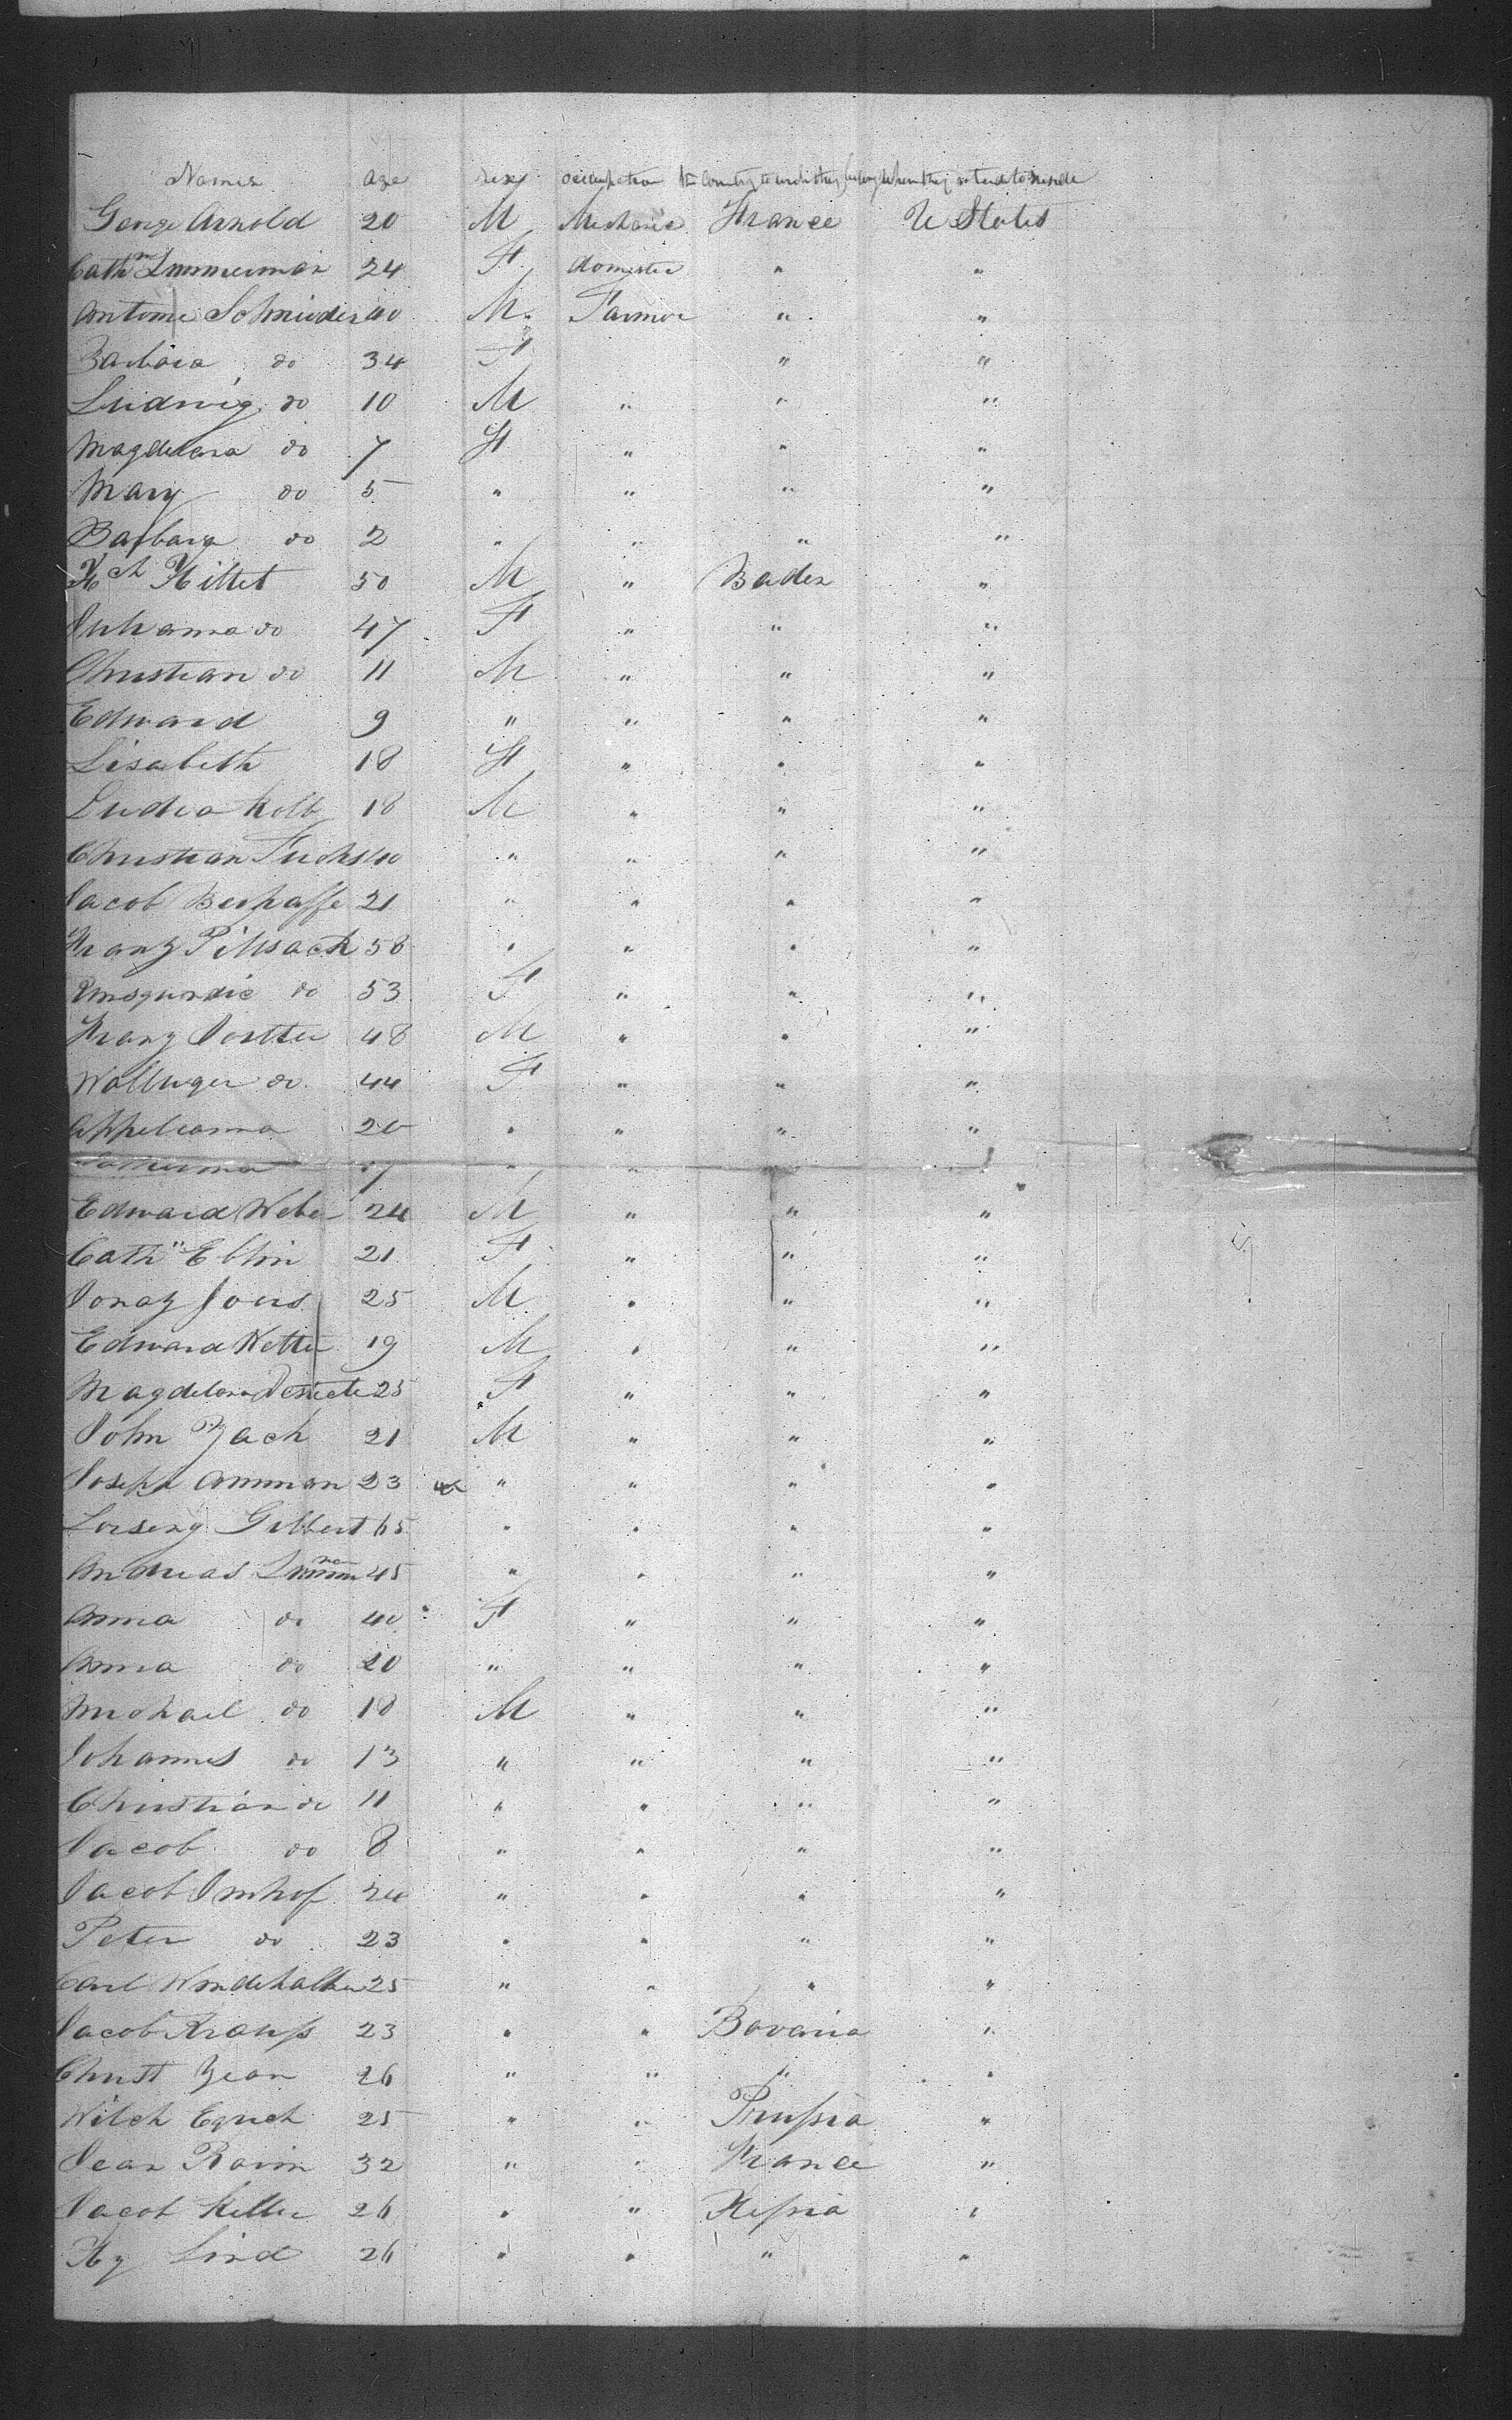 Names age sex occupation the Country to which they belong where they intend to reside
George Arnold 20 M Mechanic France U States
Cathn Zimmerman 24 F domestic " "
Antome Schnieder 40 M. Farmer " "
Barbara do 34 F " "
Ludwig do 10 M " " "
Magdelena do 7 F " " "
Mary do 5 " " " "
Barbara do 2 " " " "
Hch Hittet 50 M " Baden "
Juhanna do 47 F " " "
Christian do 11 M " " "
Edward 9 " " " "
Lisabeth 18 F " " "
Kolb 18 M " " "
Christian Fuchs 40 " " " "
Jacob 21 " " " "
Franz Pillsack 58 " " " "
do 53 F " " "
Franz 48 M " " "
do 44 F " " "
Appelianna 20 " " " "
" " "
Edward Weber 24 M " " "
Cathn Eblin 21 F " " "
25 M " " "
Edward Wetter 19 M " " "
Magdelena 25 F " " "
John Zach 21 M " " "
Joseph Amman 23 " " " "
Gilbert 65 " " " "
Andreas 45 " " " "
Anna do 40 F " " "
Anna do 20 " " " "
Michael do 18 M " " "
Johannes do 13 " " " "
Christian do 11 " " " "
Jacob do 8 " " " "
Jacob Imhof 24 " " " "
Peter do 23 " " " "
Carl 25 " " " "
Jacob Krauss 23 " " Bavaria "
Christ Zean 26 " " " "
Wilch 25 " " Prussia "
Jean 32 " " France "
Jacob Keller 26 " " Hessia "
Hy Lind 26 " " " "